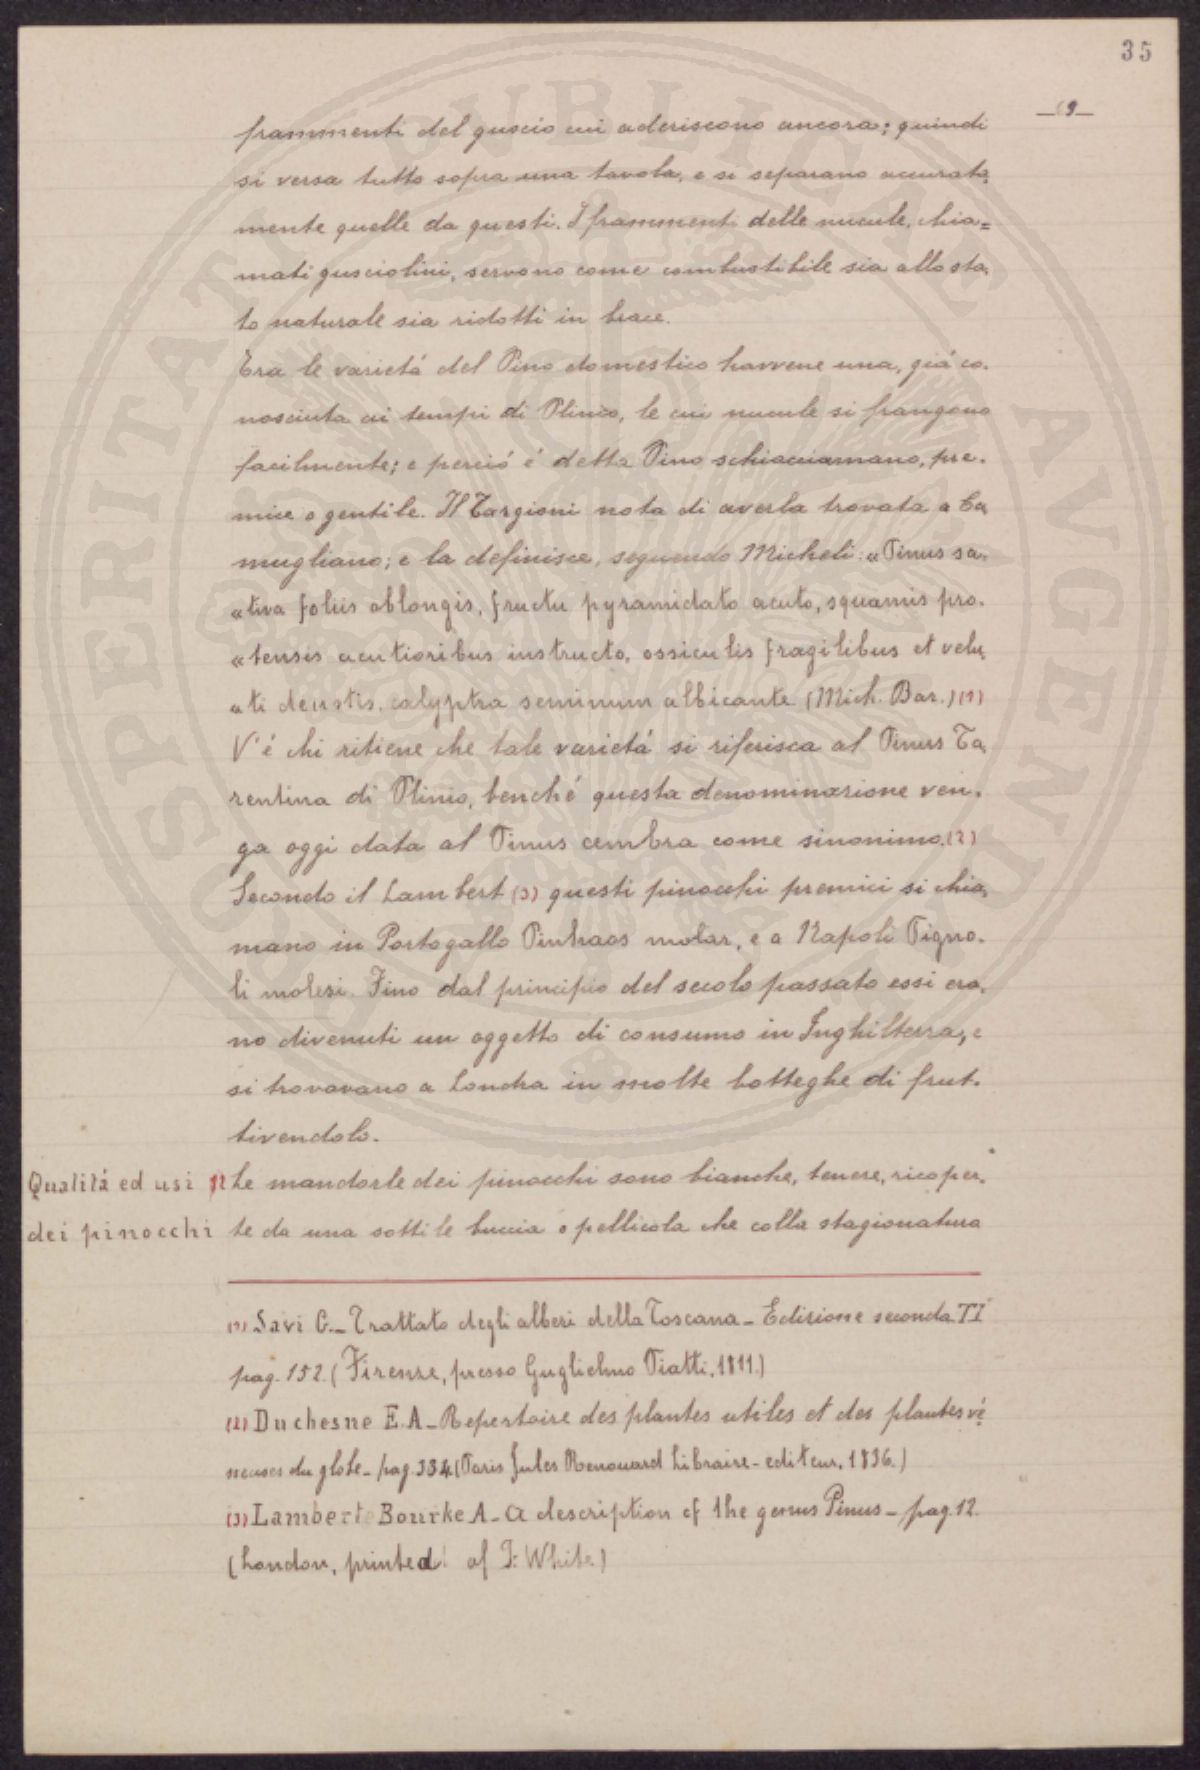 35
_ 9 _
frammenti del guscio cui aderiscono ancora; quindi
si versa tutto sopra una tavola, e si separano accurata,
mente quelle da questi. I frammenti delle nucule, chia=
mati gusciolini, servono come combustibile sia allo sta,
to naturale sia ridotti in brace.
Tra le varietá del Pino domestico havvene una, giá co.
nosciuta ai tempi di Plinio, le cui nucule si frangono
facilmente; e perció é detta Pino schiacciamano, pre.
mice o gentile. Il Targioni nota di averla trovata a Ca
mugliano; e la definisce, seguendo Micheli: «Pinus sa.
«tiva foliis oblongis, fructu pyramidato acuto, squamis pro.
«tensis acutioribus instructo, ossiculis fragilibus et velu,
«ti deustis, calyptra seminum albicante (Mich. Bar.) (1)
V'é chi ritiene che tale varietá si riferisca al Pinus Ta,
rentina di Plinio, benché questa denominazione ven.
ga oggi data al Pinus cembra come sinonimo. (2)
Secondo il Lambert (3) questi pinocchi premici si chia,
mano in Portogallo Pinhaos molar, e a Napoli Pigno.
li molesi. Fino dal principio del secolo passato essi era,
no divenuti un oggetto di consumo in Inghilterra, e
si trovavano a Londra in molte botteghe di frut.
tivendolo.
Qualitá ed usi
dei pinocchi
Le mandorle dei pinocchi sono bianche, tenere, ricoper.
te da una sottile buccia o pellicola che colla stagionatura
(1) Savi G._ Trattato degli alberi della Toscana _ Edizione seconda TI
pag. 152. (Firenze, presso Guglielmo Piatti, 1811.)
(2) Duchesne E.A _ Repertoire des plantes utiles et des plantes vé
neuses du globe _ pag. 334 (Paris Jules Renouard Libraire-editeur, 1836.)
(3) Lambert Bourke A _ A description of the genus Pinus _ pag. 12.
(London, printed of J: White.)